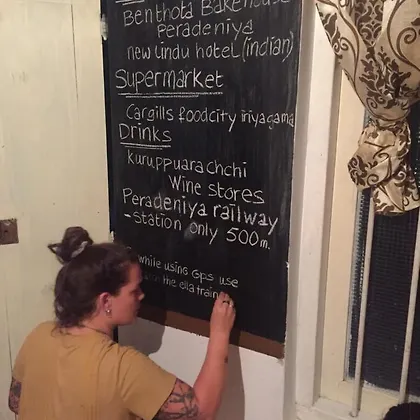 Benthota Bakehouse
Peradeniya
new Lindu hotel (indian)
Supermarket
Cargills foodcity iriyagama
Drinks
Kuruppuarachchi
Wine stores
Peradeniya railway
-station only 500m.
while using Gps use
the ella train